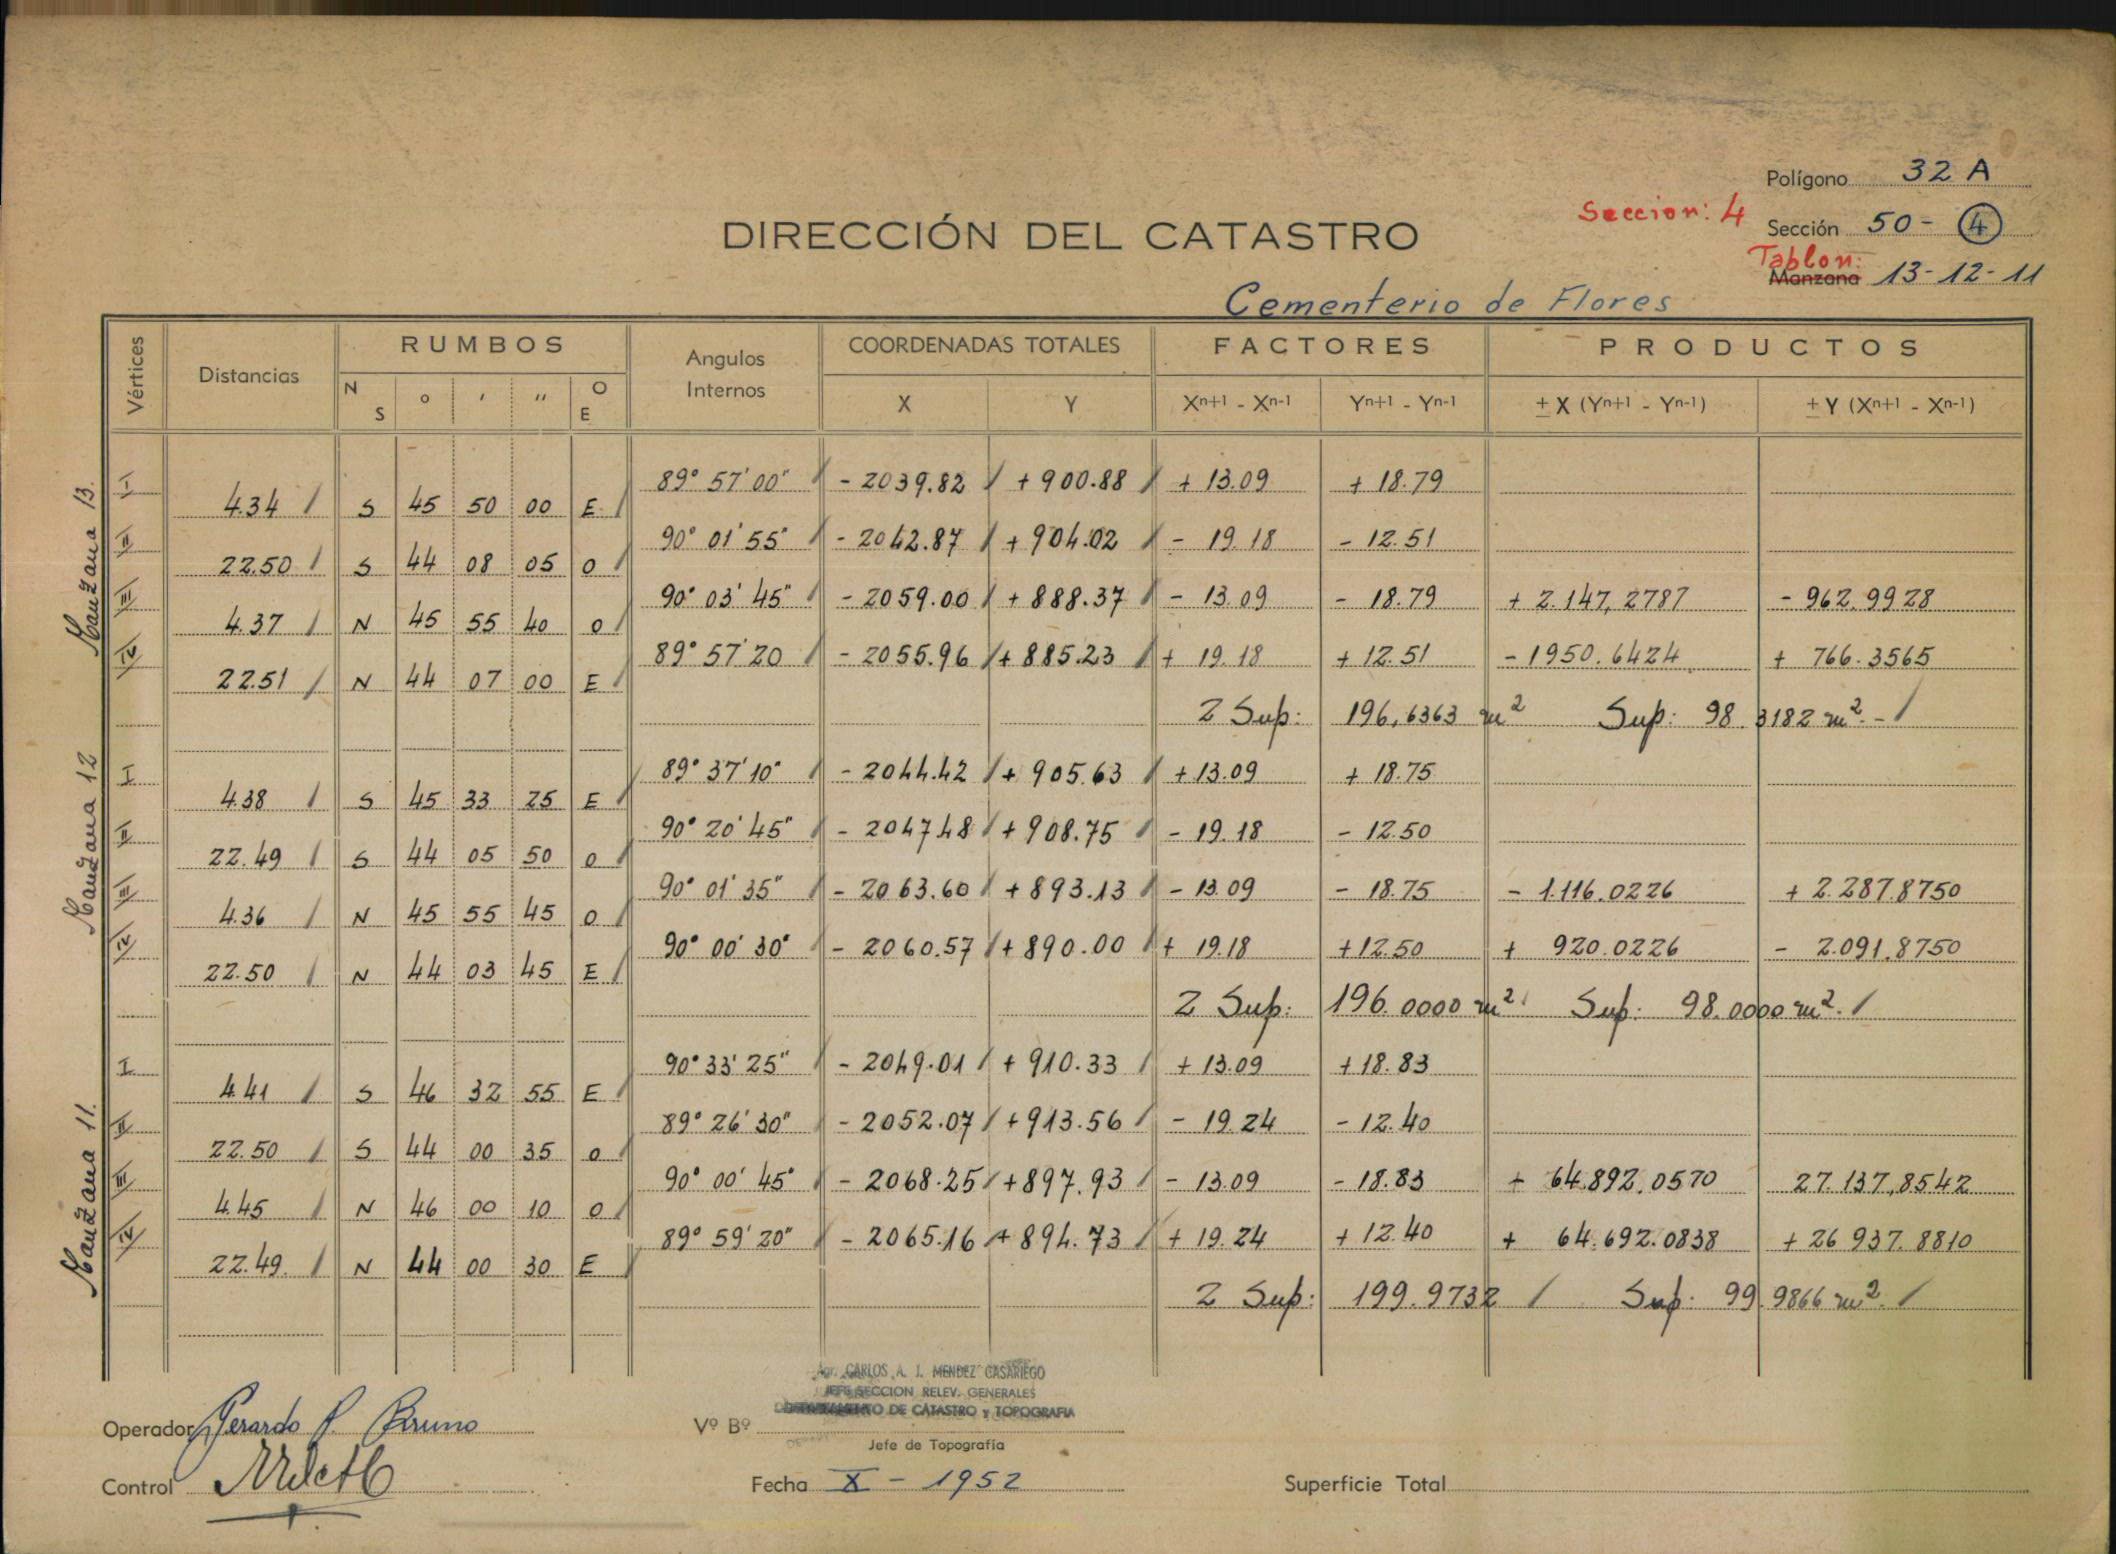 Polígono 32 A
Seccion: 4
Sección 50 - 4
DIRECCIÓN DEL CATASTRO
Tablon:
Manzana 13-12-11
Cementerio de Flores
Vértices Distancias RUMBOS Angulos Internos COORDENADAS TOTALES FACTORES PRODUCTOS
N S o ' '' O E X Y Xn+1 - Xn-1 Yn+1 - Yn-1 ± X (Yn+1 - Yn-1) ± Y (Xn+1 - Xn-1)
Manzana 13.
I 89° 57' 00" - 2039.82 + 900.88 + 13.09 + 18.79
4.34 S 45 50 00 E
II 90° 01' 55" - 2042.87 + 904.02 - 19.18 - 12.51
22.50 S 44 08 05 O
III 90° 03' 45" - 2059.00 + 888.37 - 13.09 - 18.79 + 2.147,2787 - 962.9928
4.37 N 45 55 40 O
IV 89° 57' 20 - 2055.96 + 885.23 + 19.18 + 12.51 - 1950.6424 + 766.3565
22.51 N 44 07 00 E
2 Sup: 196,6363 m² Sup: 98.3182 m².-
Manzana 12
I 89° 37' 10" - 2044.42 + 905.63 + 13.09 + 18.75
4.38 S 45 33 25 E
II 90° 20' 45" - 2047.48 + 908.75 - 19.18 - 12.50
22.49 S 44 05 50 O
III 90° 01' 35" - 2063.60 + 893.13 - 13.09 - 18.75 - 1.116.0226 + 2.287.8750
4.36 N 45 55 45 O
IV 90° 00' 30" - 2060.57 + 890.00 + 19.18 + 12.50 + 920.0226 - 2.091.8750
22.50 N 44 03 45 E
2 Sup: 196.0000 m² Sup: 98.0000 m².
Manzana 11.
I 90° 33' 25" - 2049.01 + 910.33 + 13.09 + 18.83
4.41 S 46 32 55 E
II 89° 26' 30" - 2052.07 + 913.56 - 19.24 - 12.40
22.50 S 44 00 35 O
III 90° 00' 45" - 2068.25 + 897.93 - 13.09 - 18.83 + 64.892.0570 27.137,8542
4.45 N 46 00 10 O
IV 89° 59' 20" - 2065.16 + 894.73 + 19.24 + 12.40 + 64.692.0838 + 26 937.8810
22.49. N 44 00 30 E
2 Sup: 199.9732 Sup: 99.9866 m².
Agr. CARLOS A. J. MENDEZ CASARIEGO
JEFE SECCION RELEV. GENERALES
DEPARTAMENTO DE CATASTRO y TOPOGRAFIA
Operador Gerardo P. Bruno Vº Bº
Jefe de Topografía
Control Fecha X - 1952 Superficie Total